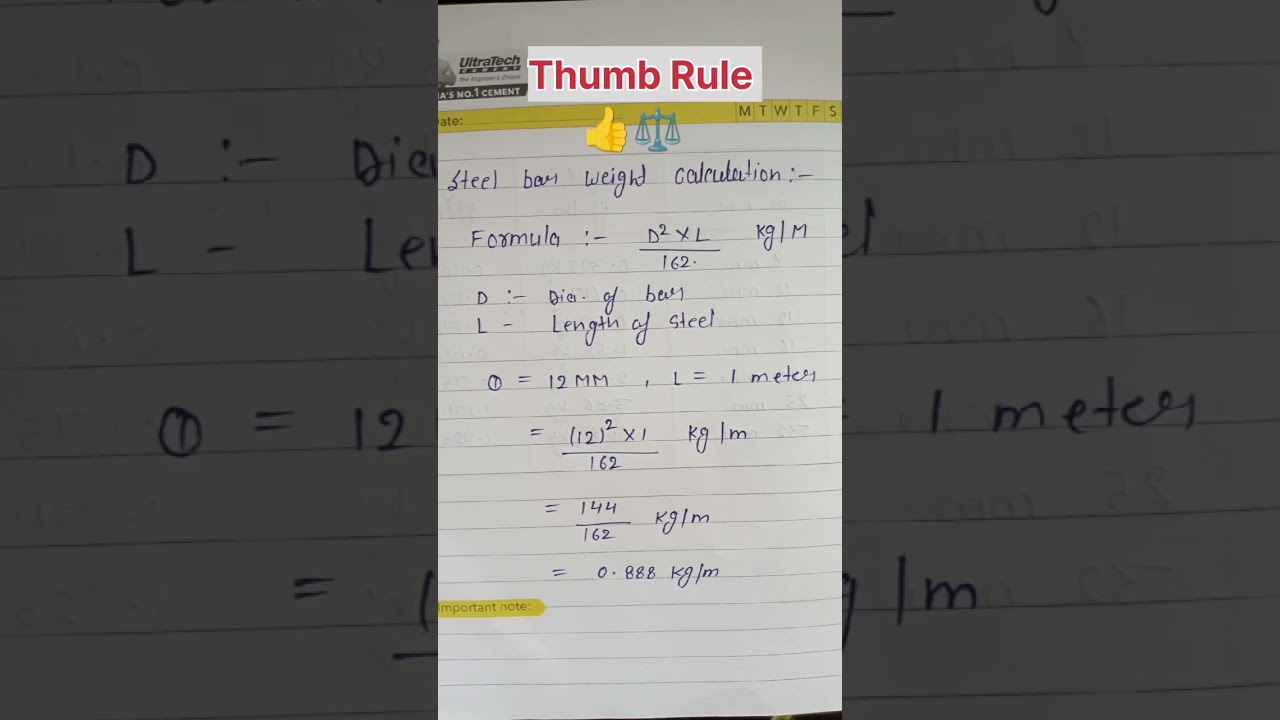 UltraTech
CEMENT
The Engineer's Choice
IA'S NO.1 CEMENT
Thumb Rule
ate:
M T W T F S
Steel bar weight calculation :-
Formula :- D² X L / 162. Kg/M
D :- Dia. of bar
L - Length of steel
① = 12 MM , L = 1 meter
= (12)² X 1 / 162 Kg/m
= 144 / 162 Kg/m
= 0.888 Kg/m
mportant note:
D :- Dia
L - Le
① = 12
= 1 meter
= (
/m